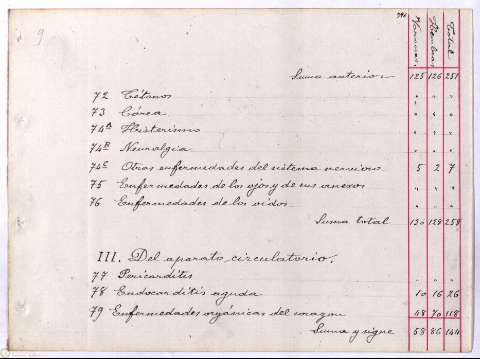 9
Varones. Hembras Total
Suma anterior 125 126 251
72 Tétanos " " "
73 Córea " " "
74A Histerismo " " "
74B Neuralgia " " "
74C Otras enfermedades del sistema nervioso 5 2 7
75 Enfermedades de los ojos y de sus anexos " " "
76 Enfermedades de los oidos " " "
Suma total 130 128 258
III. Del aparato circulatorio.
77 Pericarditis " " "
78 Endocarditis aguda 10 16 26
79 Enfermedades orgánicas del corazon 48 70 118
Suma y sigue 58 86 144